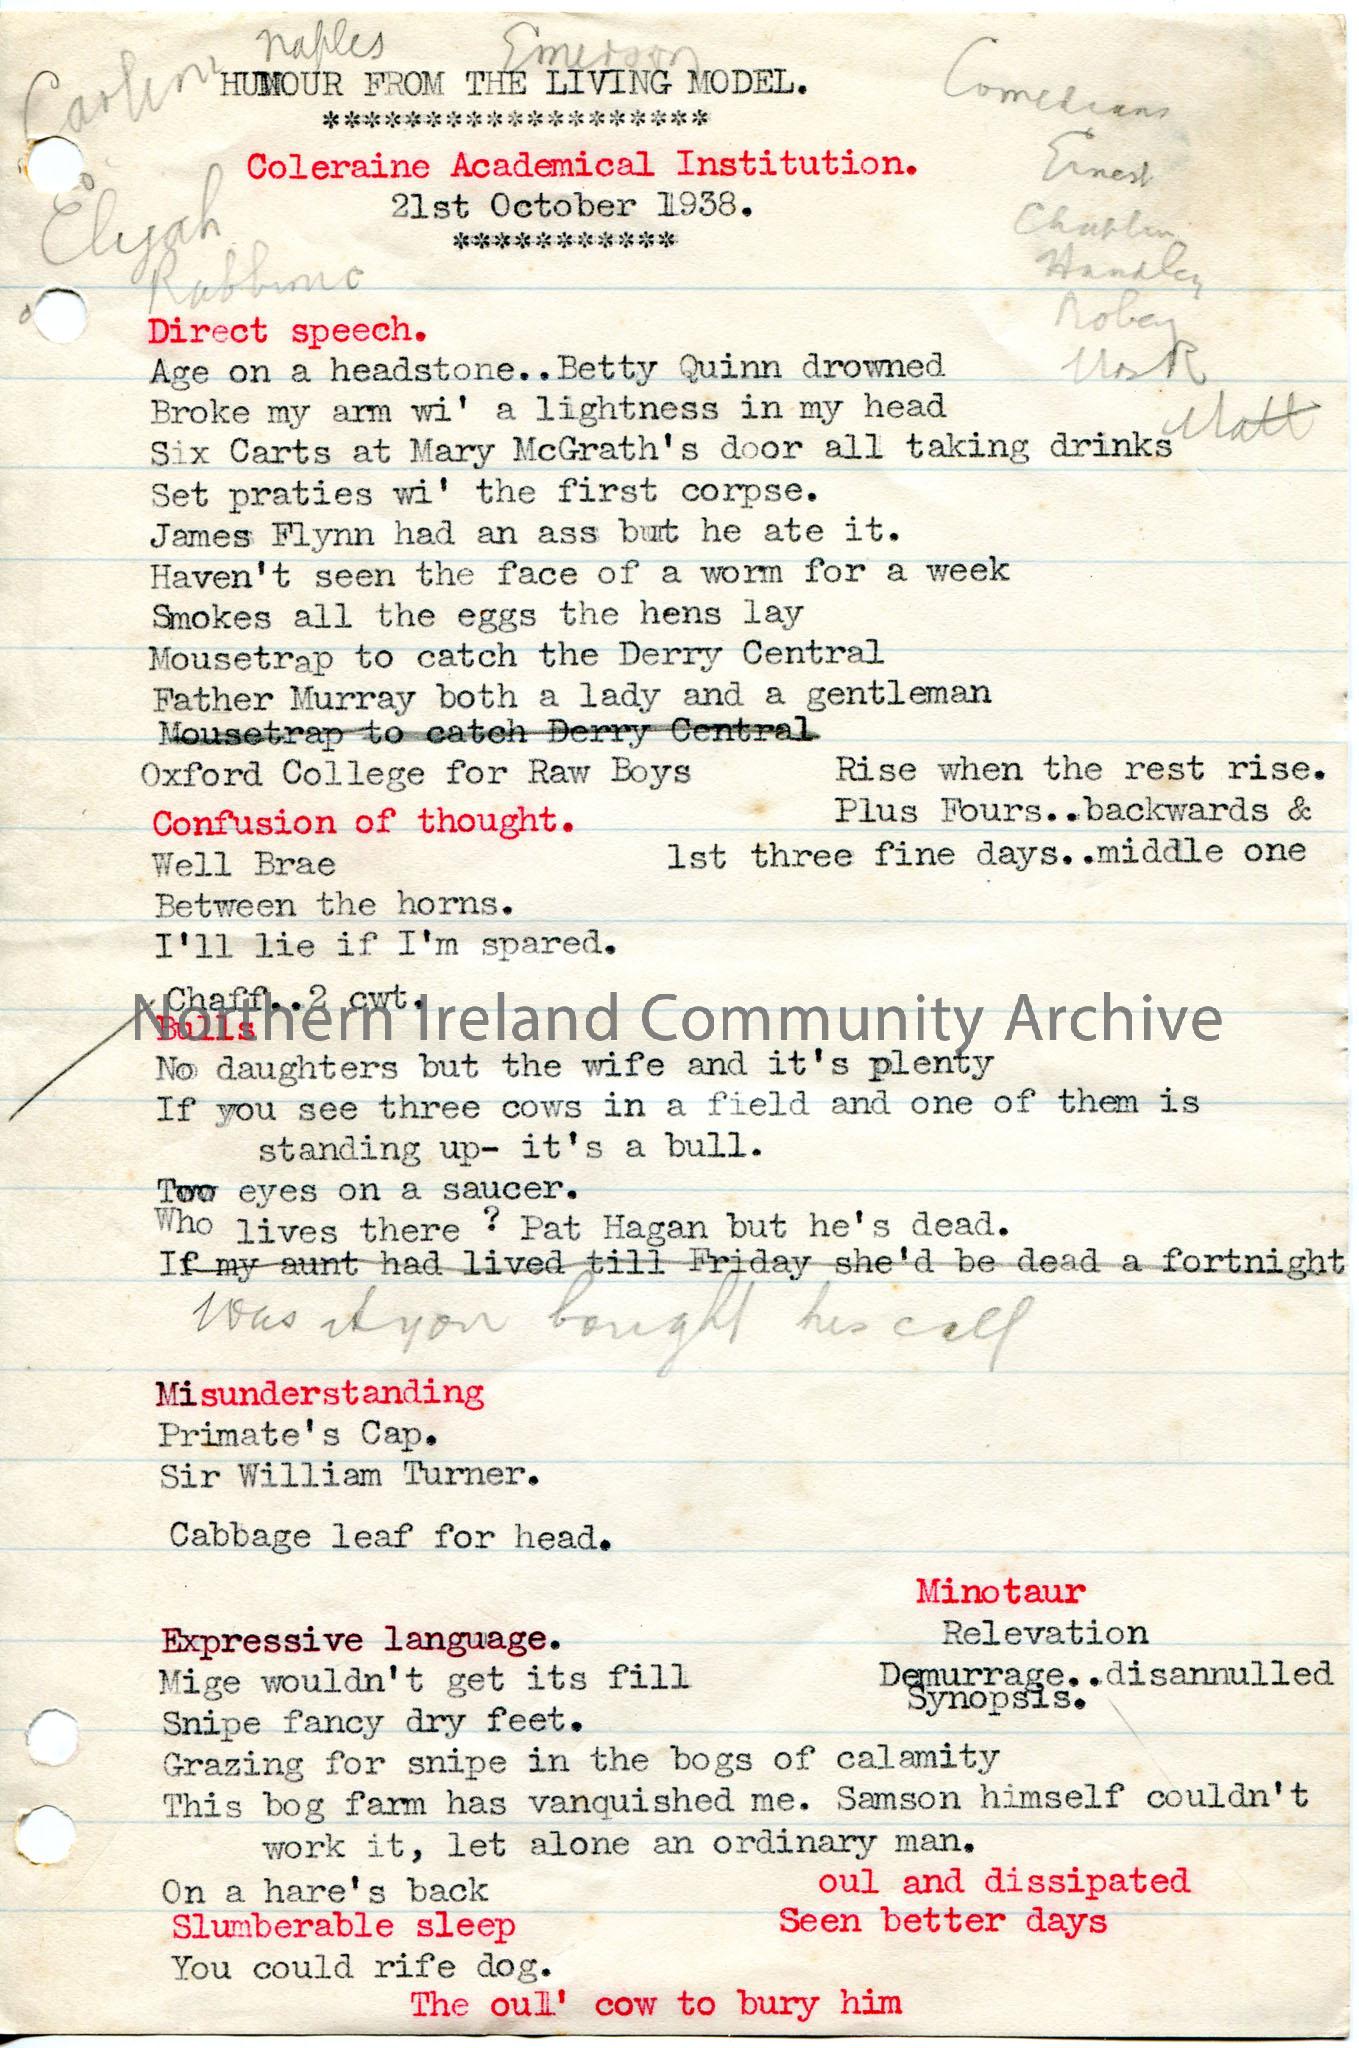 Naples Emerson
HUMOUR FROM THE LIVING MODEL.
*******************
Comedians
Coleraine Academical Institution.
Ernest
21st October 1938.
Elijah
Chaplin
***********
Handley
Robey
Direct speech.
Age on a headstone..Betty Quinn drowned
Broke my arm wi' a lightness in my head
Matt
Six Carts at Mary McGrath's door all taking drinks
Set praties wi' the first corpse.
James Flynn had an ass but he ate it.
Haven't seen the face of a worm for a week
Smokes all the eggs the hens lay
Mousetrap to catch the Derry Central
Father Murray both a lady and a gentleman
Mousetrap to catch Derry Central
Oxford College for Raw Boys Rise when the rest rise.
Confusion of thought. Plus Fours..backwards &
Well Brae 1st three fine days..middle one
Between the horns.
I'll lie if I'm spared.
Chaff..2 cwt.
Northern Ireland Community Archive
Bulls
No daughters but the wife and it's plenty
If you see three cows in a field and one of them is
standing up- it's a bull.
Two eyes on a saucer.
Who lives there ? Pat Hagan but he's dead.
If my aunt had lived till Friday she'd be dead a fortnight
Was it you bought his calf
Misunderstanding
Primate's Cap.
Sir William Turner.
Cabbage leaf for head.
Minotaur
Expressive language. Relevation
Mige wouldn't get its fill Demurrage..disannulled
Synopsis.
Snipe fancy dry feet.
Grazing for snipe in the bogs of calamity
This bog farm has vanquished me. Samson himself couldn't
work it, let alone an ordinary man.
On a hare's back oul and dissipated
Slumberable sleep Seen better days
You could rife dog.
The oul' cow to bury him